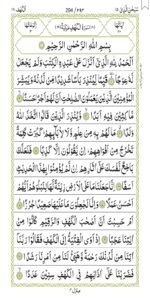 بِسْمِ اللّٰهِ الرَّحْمٰنِ الرَّحِيْمِ
اَلْحَمْدُ لِلّٰهِ الَّذِيْٓ اَنْزَلَ عَلٰى عَبْدِهِ الْكِتٰبَ وَلَمْ يَجْعَلْ
لَّهٗ عِوَجًا قَيِّمًا لِّيُنْذِرَ بَاْسًا شَدِيْدًا مِّنْ لَّدُنْهُ وَيُبَشِّرَ
الْمُؤْمِنِيْنَ الَّذِيْنَ يَعْمَلُوْنَ الصّٰلِحٰتِ اَنَّ لَهُمْ اَجْرًا حَسَنًا
مَّاكِثِيْنَ فِيْهِ اَبَدًا وَّيُنْذِرَ الَّذِيْنَ قَالُوا اتَّخَذَ اللّٰهُ
وَلَدًا مَا لَهُمْ بِهٖ مِنْ عِلْمٍ وَّلَا لِاٰبَآئِهِمْ كَبُرَتْ كَلِمَةً
تَخْرُجُ مِنْ اَفْوَاهِهِمْ اِنْ يَّقُوْلُوْنَ اِلَّا كَذِبًا فَلَعَلَّكَ
بَاخِعٌ نَّفْسَكَ عَلٰٓى اٰثَارِهِمْ اِنْ لَّمْ يُؤْمِنُوْا بِهٰذَا الْحَدِيْثِ
اَسَفًا اِنَّا جَعَلْنَا مَا عَلَى الْاَرْضِ زِيْنَةً لَّهَا لِنَبْلُوَهُمْ اَيُّهُمْ
اَحْسَنُ عَمَلًا وَاِنَّا لَجٰعِلُوْنَ مَا عَلَيْهَا صَعِيْدًا جُرُزًا
اَمْ حَسِبْتَ اَنَّ اَصْحٰبَ الْكَهْفِ وَالرَّقِيْمِ كَانُوْا مِنْ
اٰيٰتِنَا عَجَبًا اِذْ اَوَى الْفِتْيَةُ اِلَى الْكَهْفِ فَقَالُوْا رَبَّنَآ
اٰتِنَا مِنْ لَّدُنْكَ رَحْمَةً وَّهَيِّئْ لَنَا مِنْ اَمْرِنَا رَشَدًا
فَضَرَبْنَا عَلٰٓى اٰذَانِهِمْ فِي الْكَهْفِ سِنِيْنَ عَدَدًا